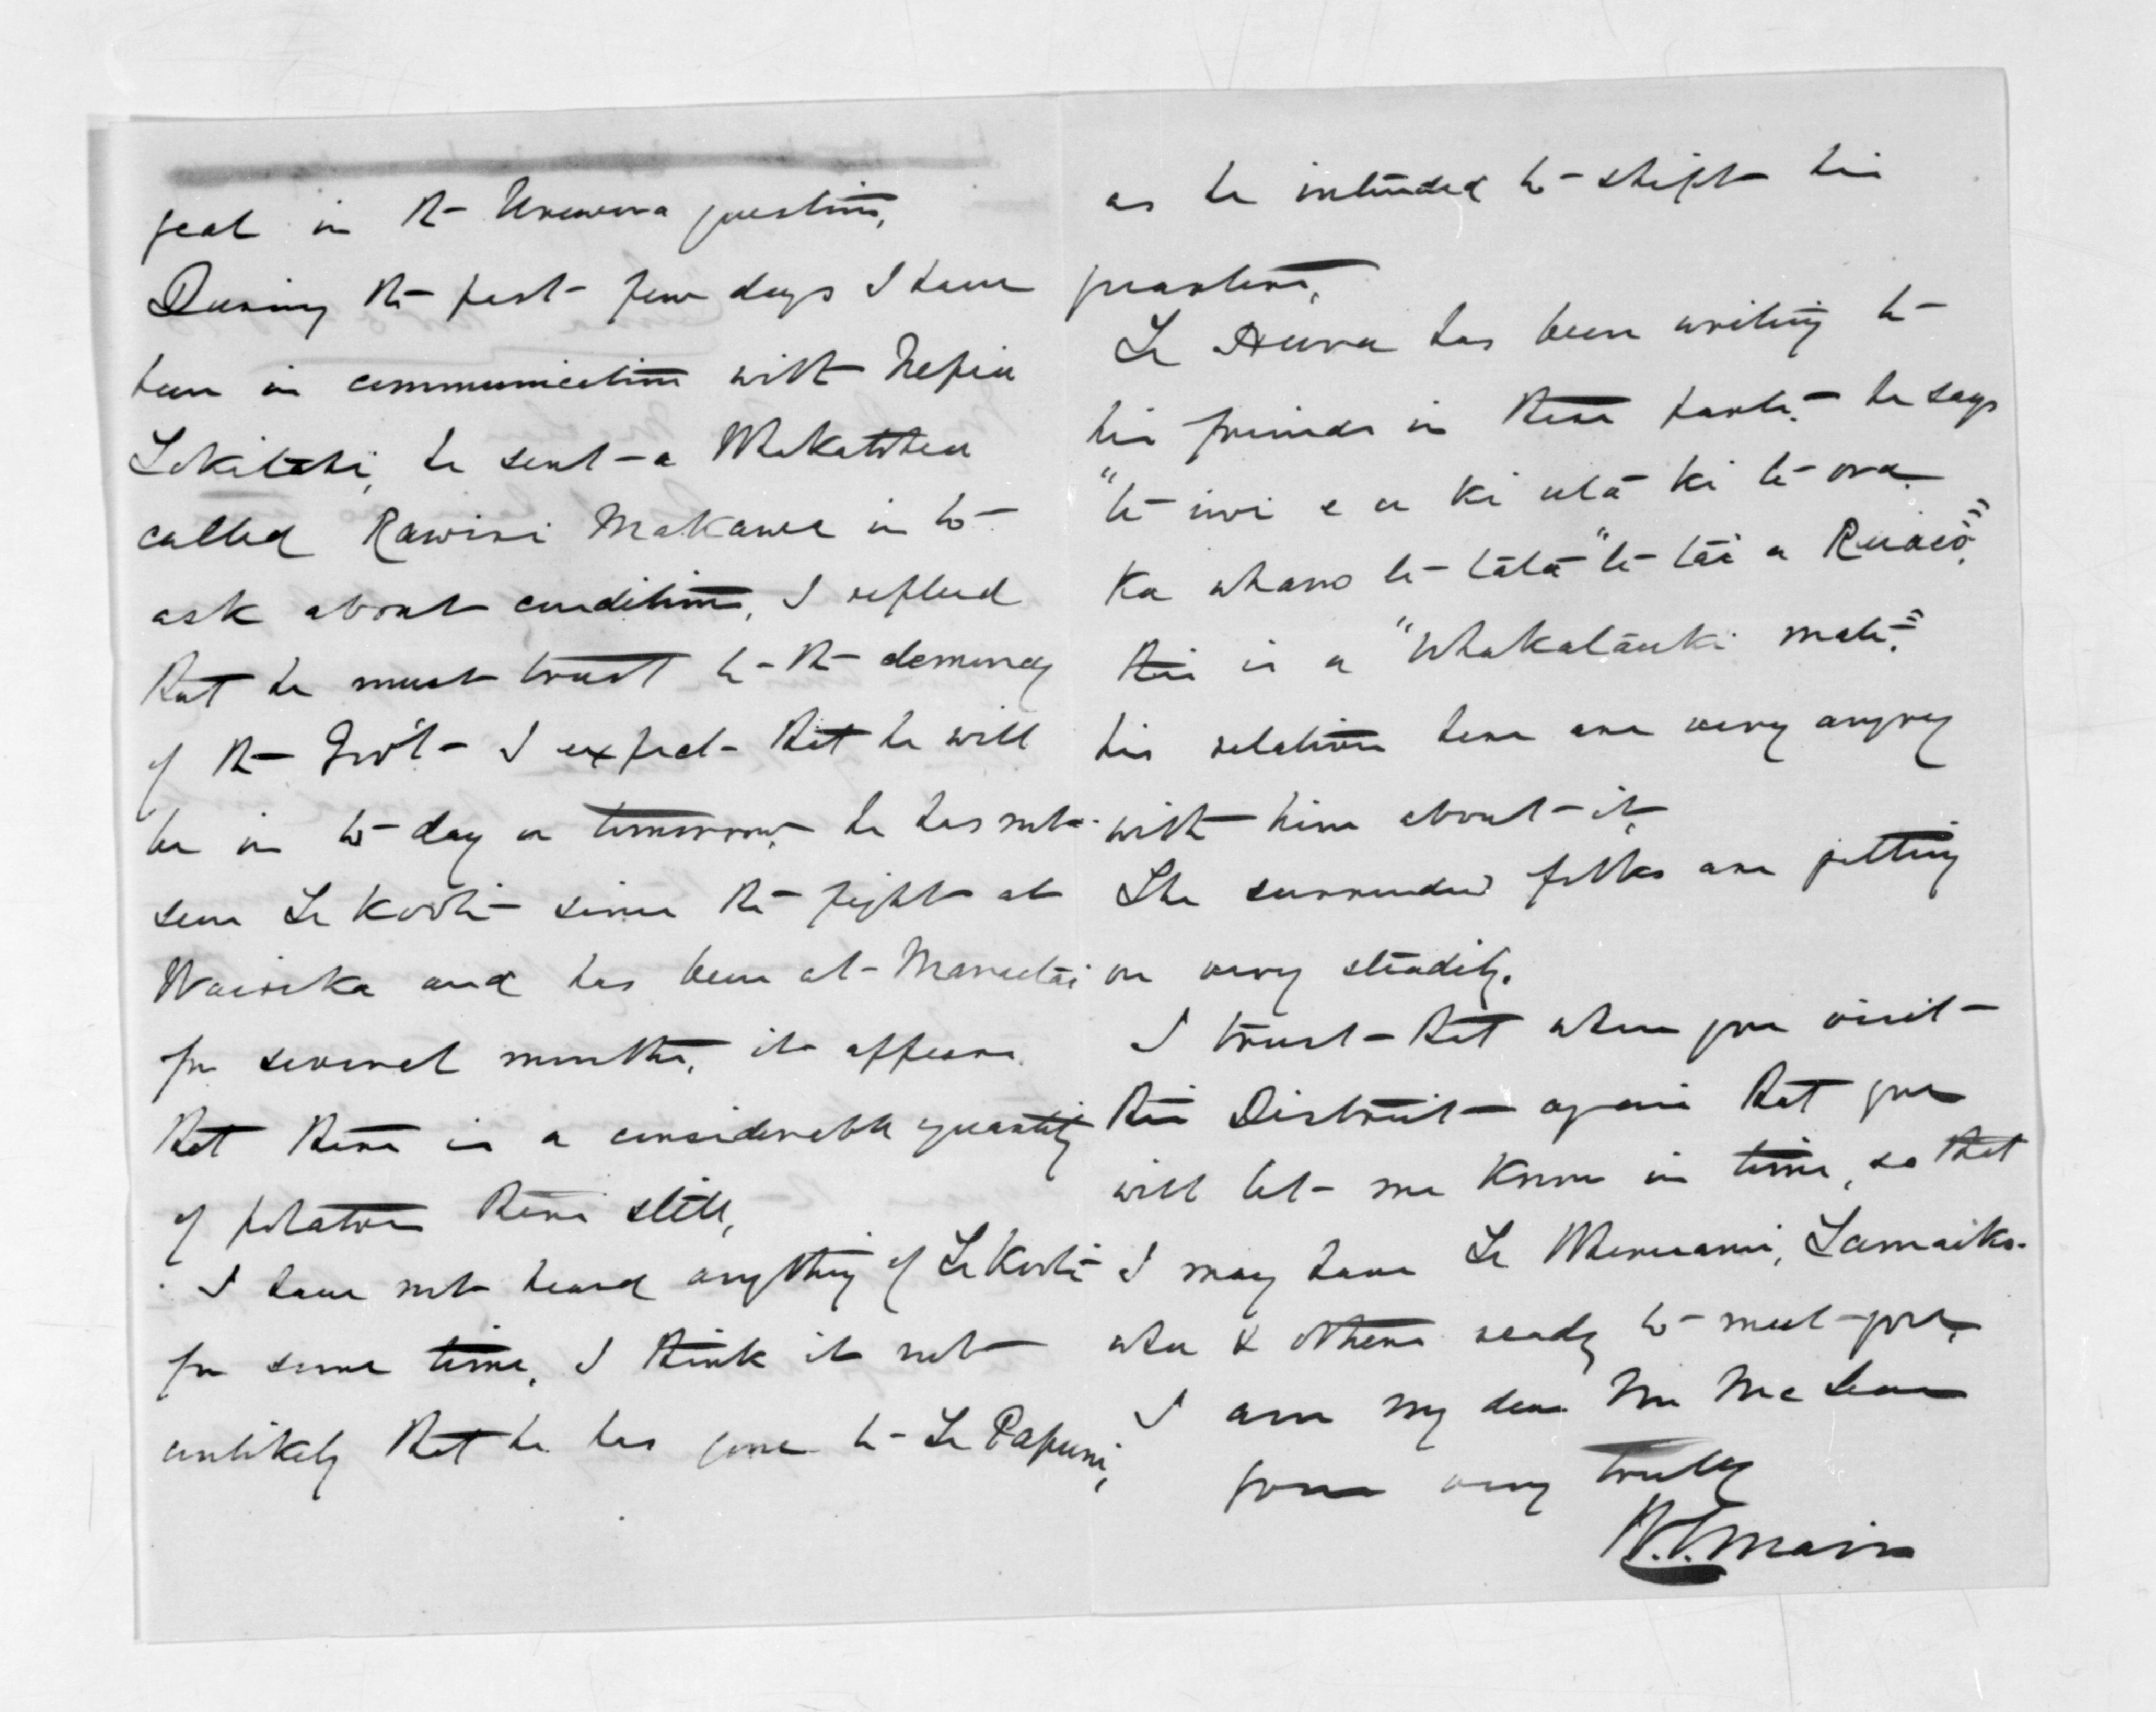 great in the Urewera question,
During the past few days I have
been in communication with Nepia
Tokitahi, he sent a Whakatohea
called Rawiri Makawe in to
ask about conditions, I replied
that he must trust to the clemency
of the Gov't I expect that he will
be in to-day or tomorrow, he has not
seen Te Kooti since the fight at
Waioeka and has been at Maraetai
for several months, it appears
that there is a considerable quantity
of potatoes there still,
I have not heard anything of Te Kooti
for some time, I think it not
unlikely that he has gone to Te Papuni,
as he intended to shift his
quarters,
Te Hura has been writing to
his friends in these parts. he says
"te iwi e u ki uta ki te ora
Ka whano te tata "te tai a Ruaeo"."
this is a "Whakatauki mate"
his relations here are very angry
with him about it,
The surrendered folks are getting
on very steadily.
I trust that when you visit
this District again that you
will let me know in time, so that
I may have Te Whenuanui, Tamaiko-
wha & others ready to meet you,
I am my dear Mr McLean
yours very truly
W.G. Mair